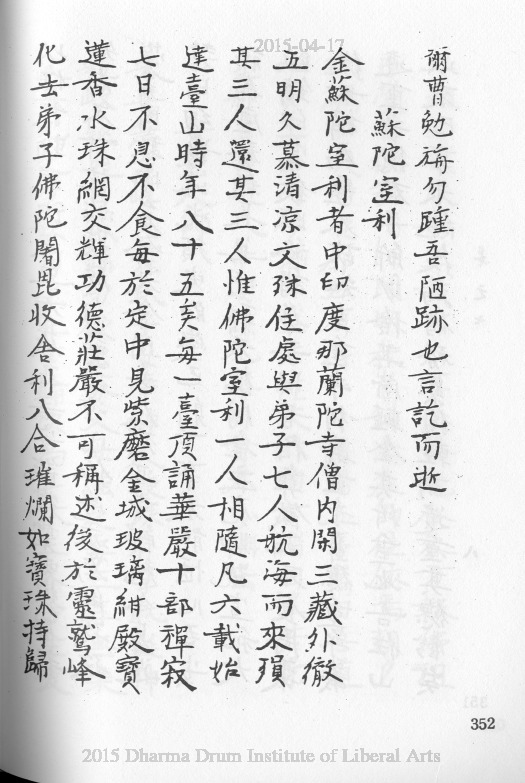 2015-04-17
爾曹勉旃勿踵吾陋跡也言訖而逝
蘇陀室利
金蘇陀室利者中印度那蘭陀寺僧內閑三藏外徹
五明久慕清凉文殊住處與弟子七人航海而來殞
其三人還其三人惟佛陀室利一人相隨凡六載始
達臺山時年八十五矣每一臺頂誦華嚴十部禪寂
七日不息不食每於定中見紫磨金城玻璃紺殿寶
蓮香水珠網交輝功德莊嚴不可稱述後於靈鷲峰
化去弟子佛陀闍毘收舍利八合璀爛如寶珠持歸
352
2015 Dharma Drum Institute of Liberal Arts